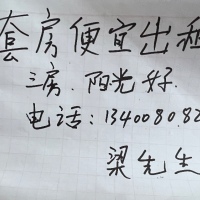 套房便宜出租
三房.阳光好.
电话:134008082
梁先生